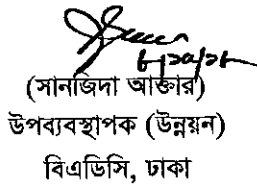 (সানজিদা আক্তার)
উপব্যবস্থাপক (উন্নয়ন)
বিএডিসি, ঢাকা